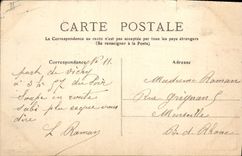 CARTE POSTALE
La Correspondance au recto n'est pas acceptée par tous les pays étrangers
(Se renseigner à la Poste)
Correspondance
Adresse
part de Vichy
à 3 h 57 du soir
Soupe en route
dire
L Roman
Madame Roman
Rue Grignan
Marseille
B. du Rhône